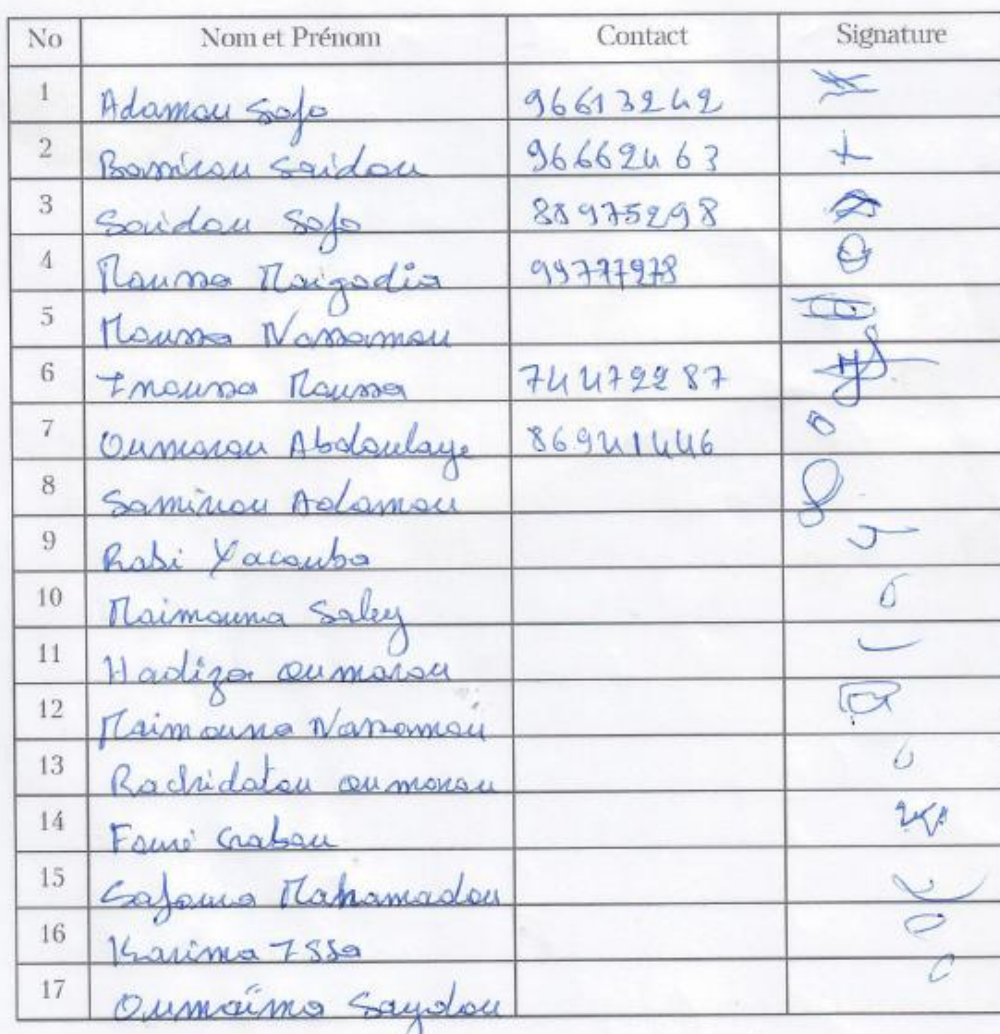 No Nom et Prénom Contact Signature
1 Adamou Sofo 96613242
2 Bassirou Saidou 96662463
3 Saidou Sofo 88975298
4 Moussa Maigodia 99777978
5 Moussa Nassamou
6 Inoussa Moussa 74472287
7 Oumarou Abdoulaye 86941446
8 Samirou Adamou
9 Rabi Yacouba
10 Maimouna Saley
11 Hadiza oumarou
12 Maimouna Nassamou
13 Rachidatou oumarou
14 Gabou
15 Mahamadou
16 Karima Issa
17 Oumaïma Saydou